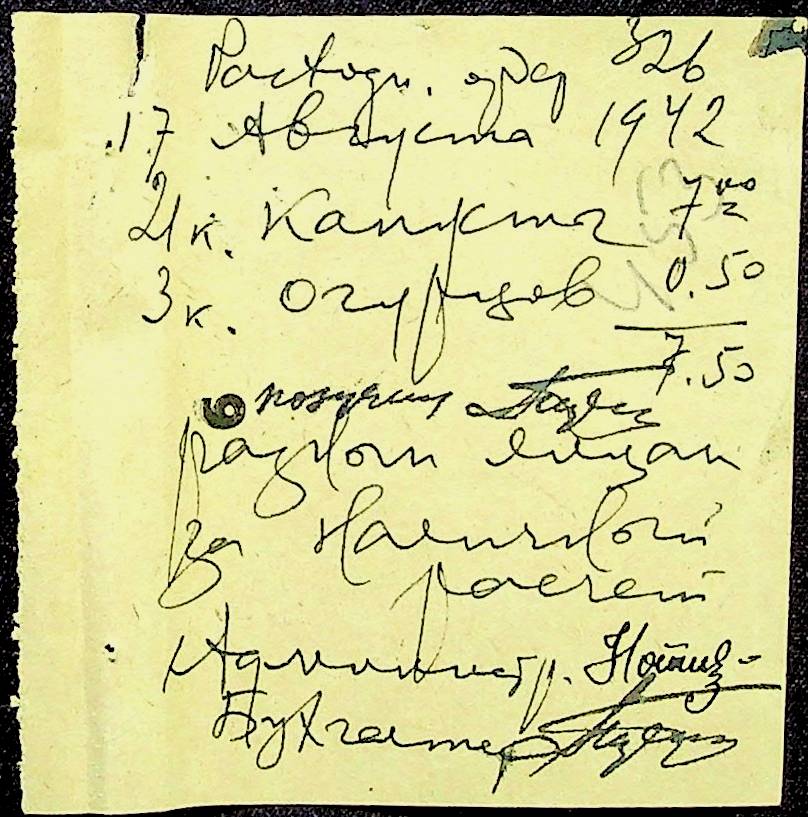 Расходн. орд 326
17 Августа 1942
21 к. Капусты 7 00
3 к. Огурцов 0.50
7.50
получил
разным лицам
за наличный
расчет
Администр.
Бухгалтер